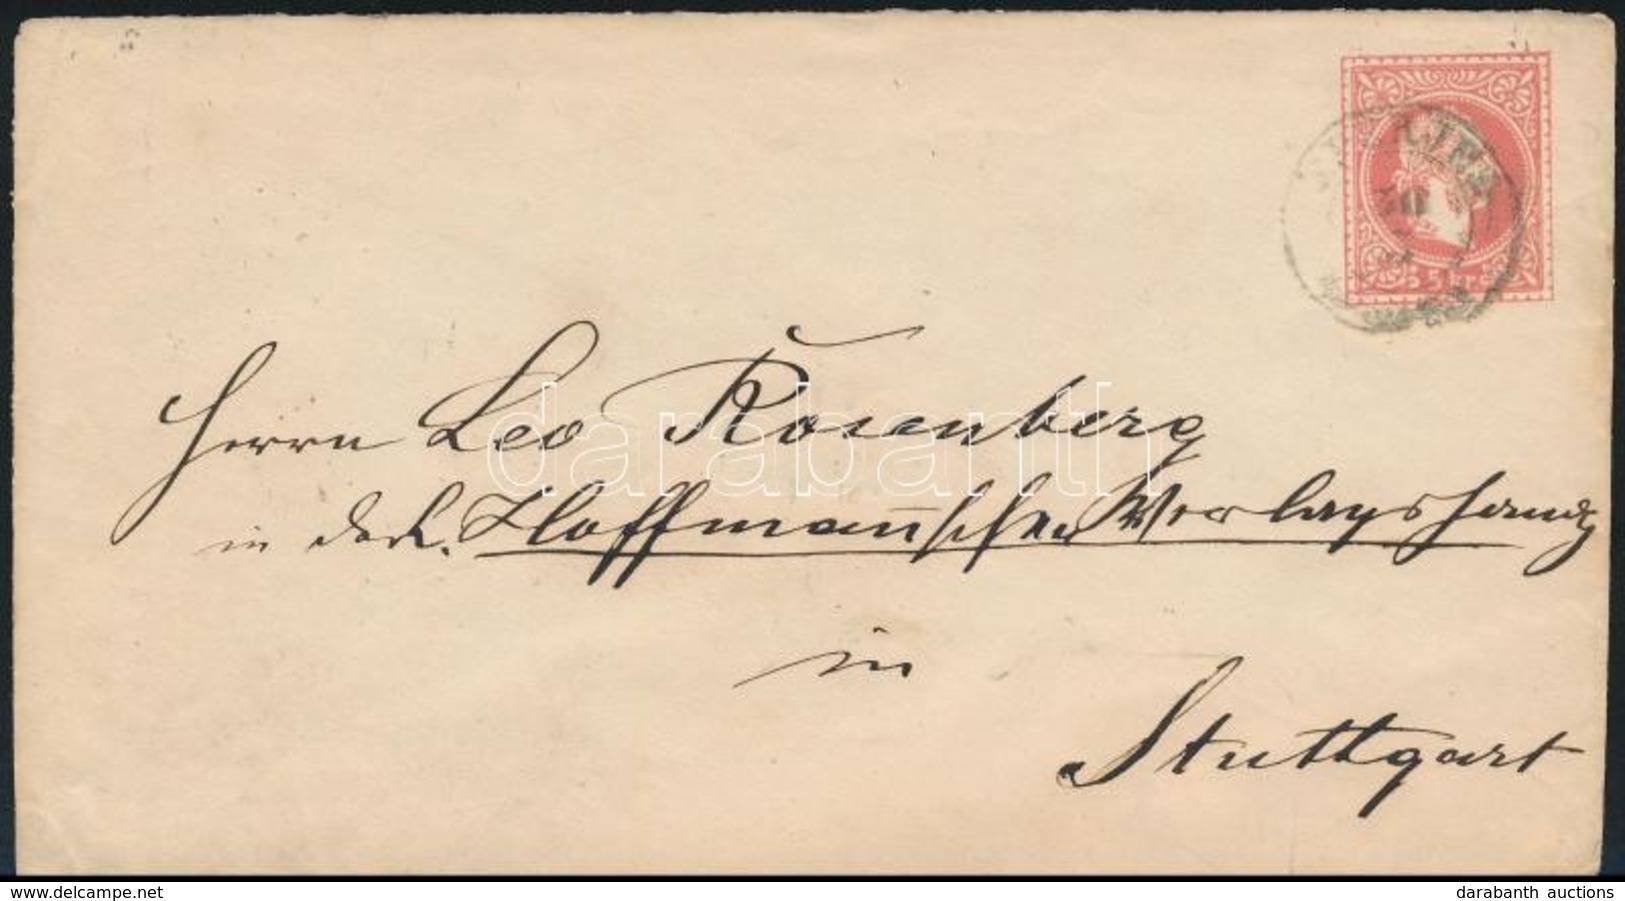 5 kr
Herrn Leo Rosenberg
in der Hoffmannschen Verlagshandg
in
Stuttgart
darabanth
www.delcampe.net
darabanth auctions